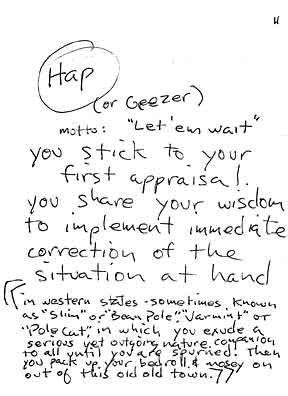 11
Hap
(or Geezer)
motto: "Let 'em wait"
you stick to your
first appraisal.
you share your wisdom
to implement immediate
correction of the
situation at hand
in western states - sometimes known
as "Slim" or "Bean Pole", "Varmint" or
"Pole Cat", in which you exude a
serious yet outgoing nature. companion
to all until you are spurned! Then
you pack up your bedroll & mosey on
out of this old old town.